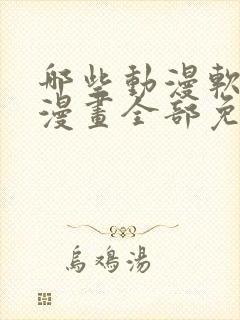 哪些動漫軟
漫畫全部免
烏鴉湯